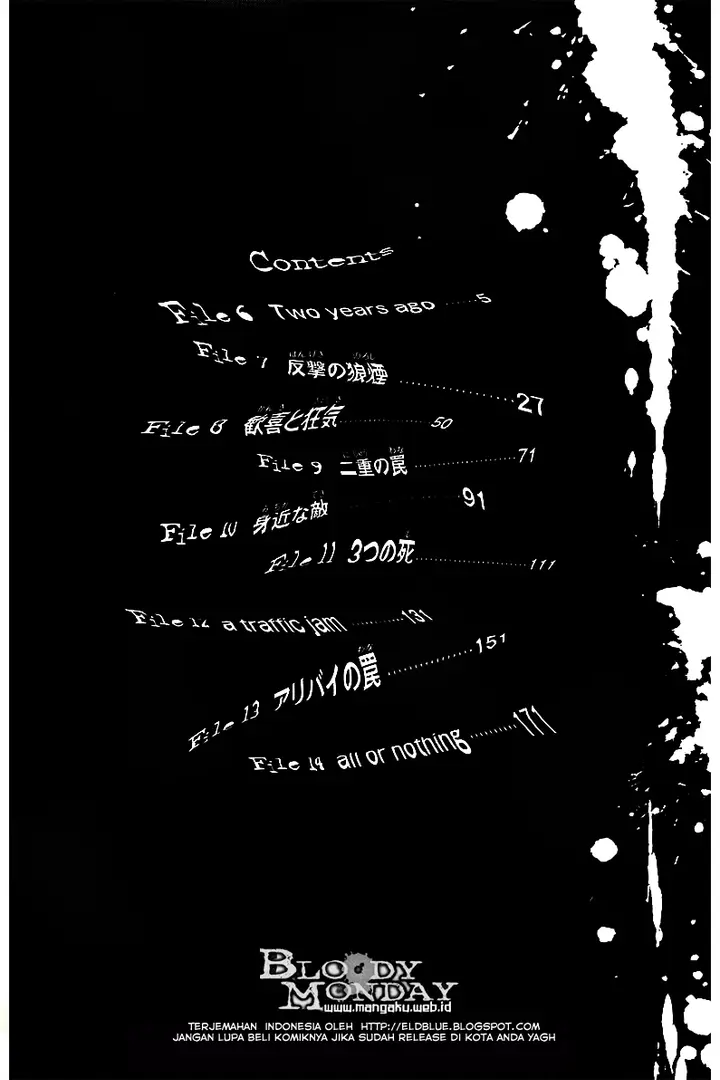 Contents
File 6 Two years ago ······5
File 7 反撃の狼煙 ··················27
File 8 歓喜と狂気 ··················50
File 9 二重の罠 ··················71
File 10 身近な敵 ··················91
File 11 3つの死 ··················111
File 12 a traffic jam ··········131
File 13 アリバイの罠 ··············151
File 14 all or nothing ·········171
BLOODY
MONDAY
www.mangaku.web.id
TERJEMAHAN INDONESIA OLEH HTTP://ELDBLUE.BLOGSPOT.COM
JANGAN LUPA BELI KOMIKNYA JIKA SUDAH RELEASE DI KOTA ANDA YAGH